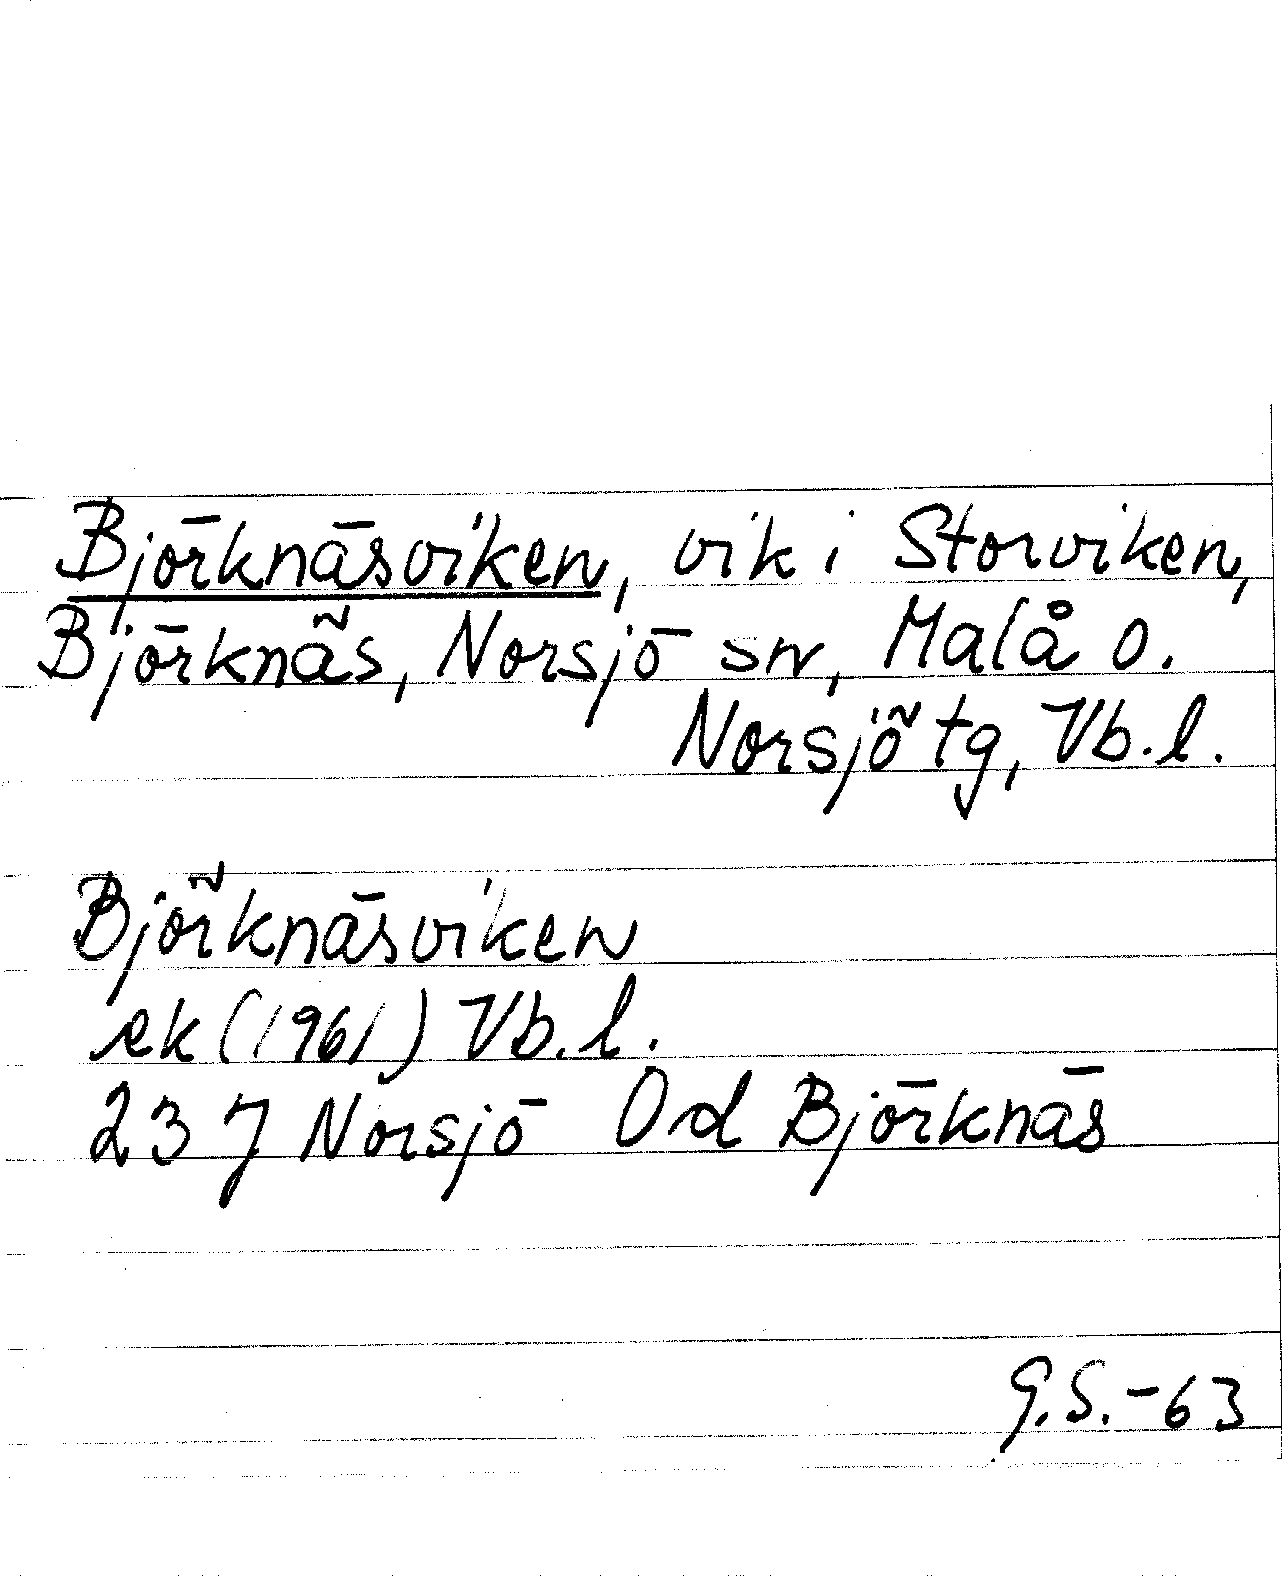 Björknäsviken, vik i Storviken,
Björknäs, Norsjö sn, Malå o.
Norsjö tg, Vb.l.
Björknäsviken
ek (1961) Vb.l.
237 Norsjö Od Björknäs
G.S.-63